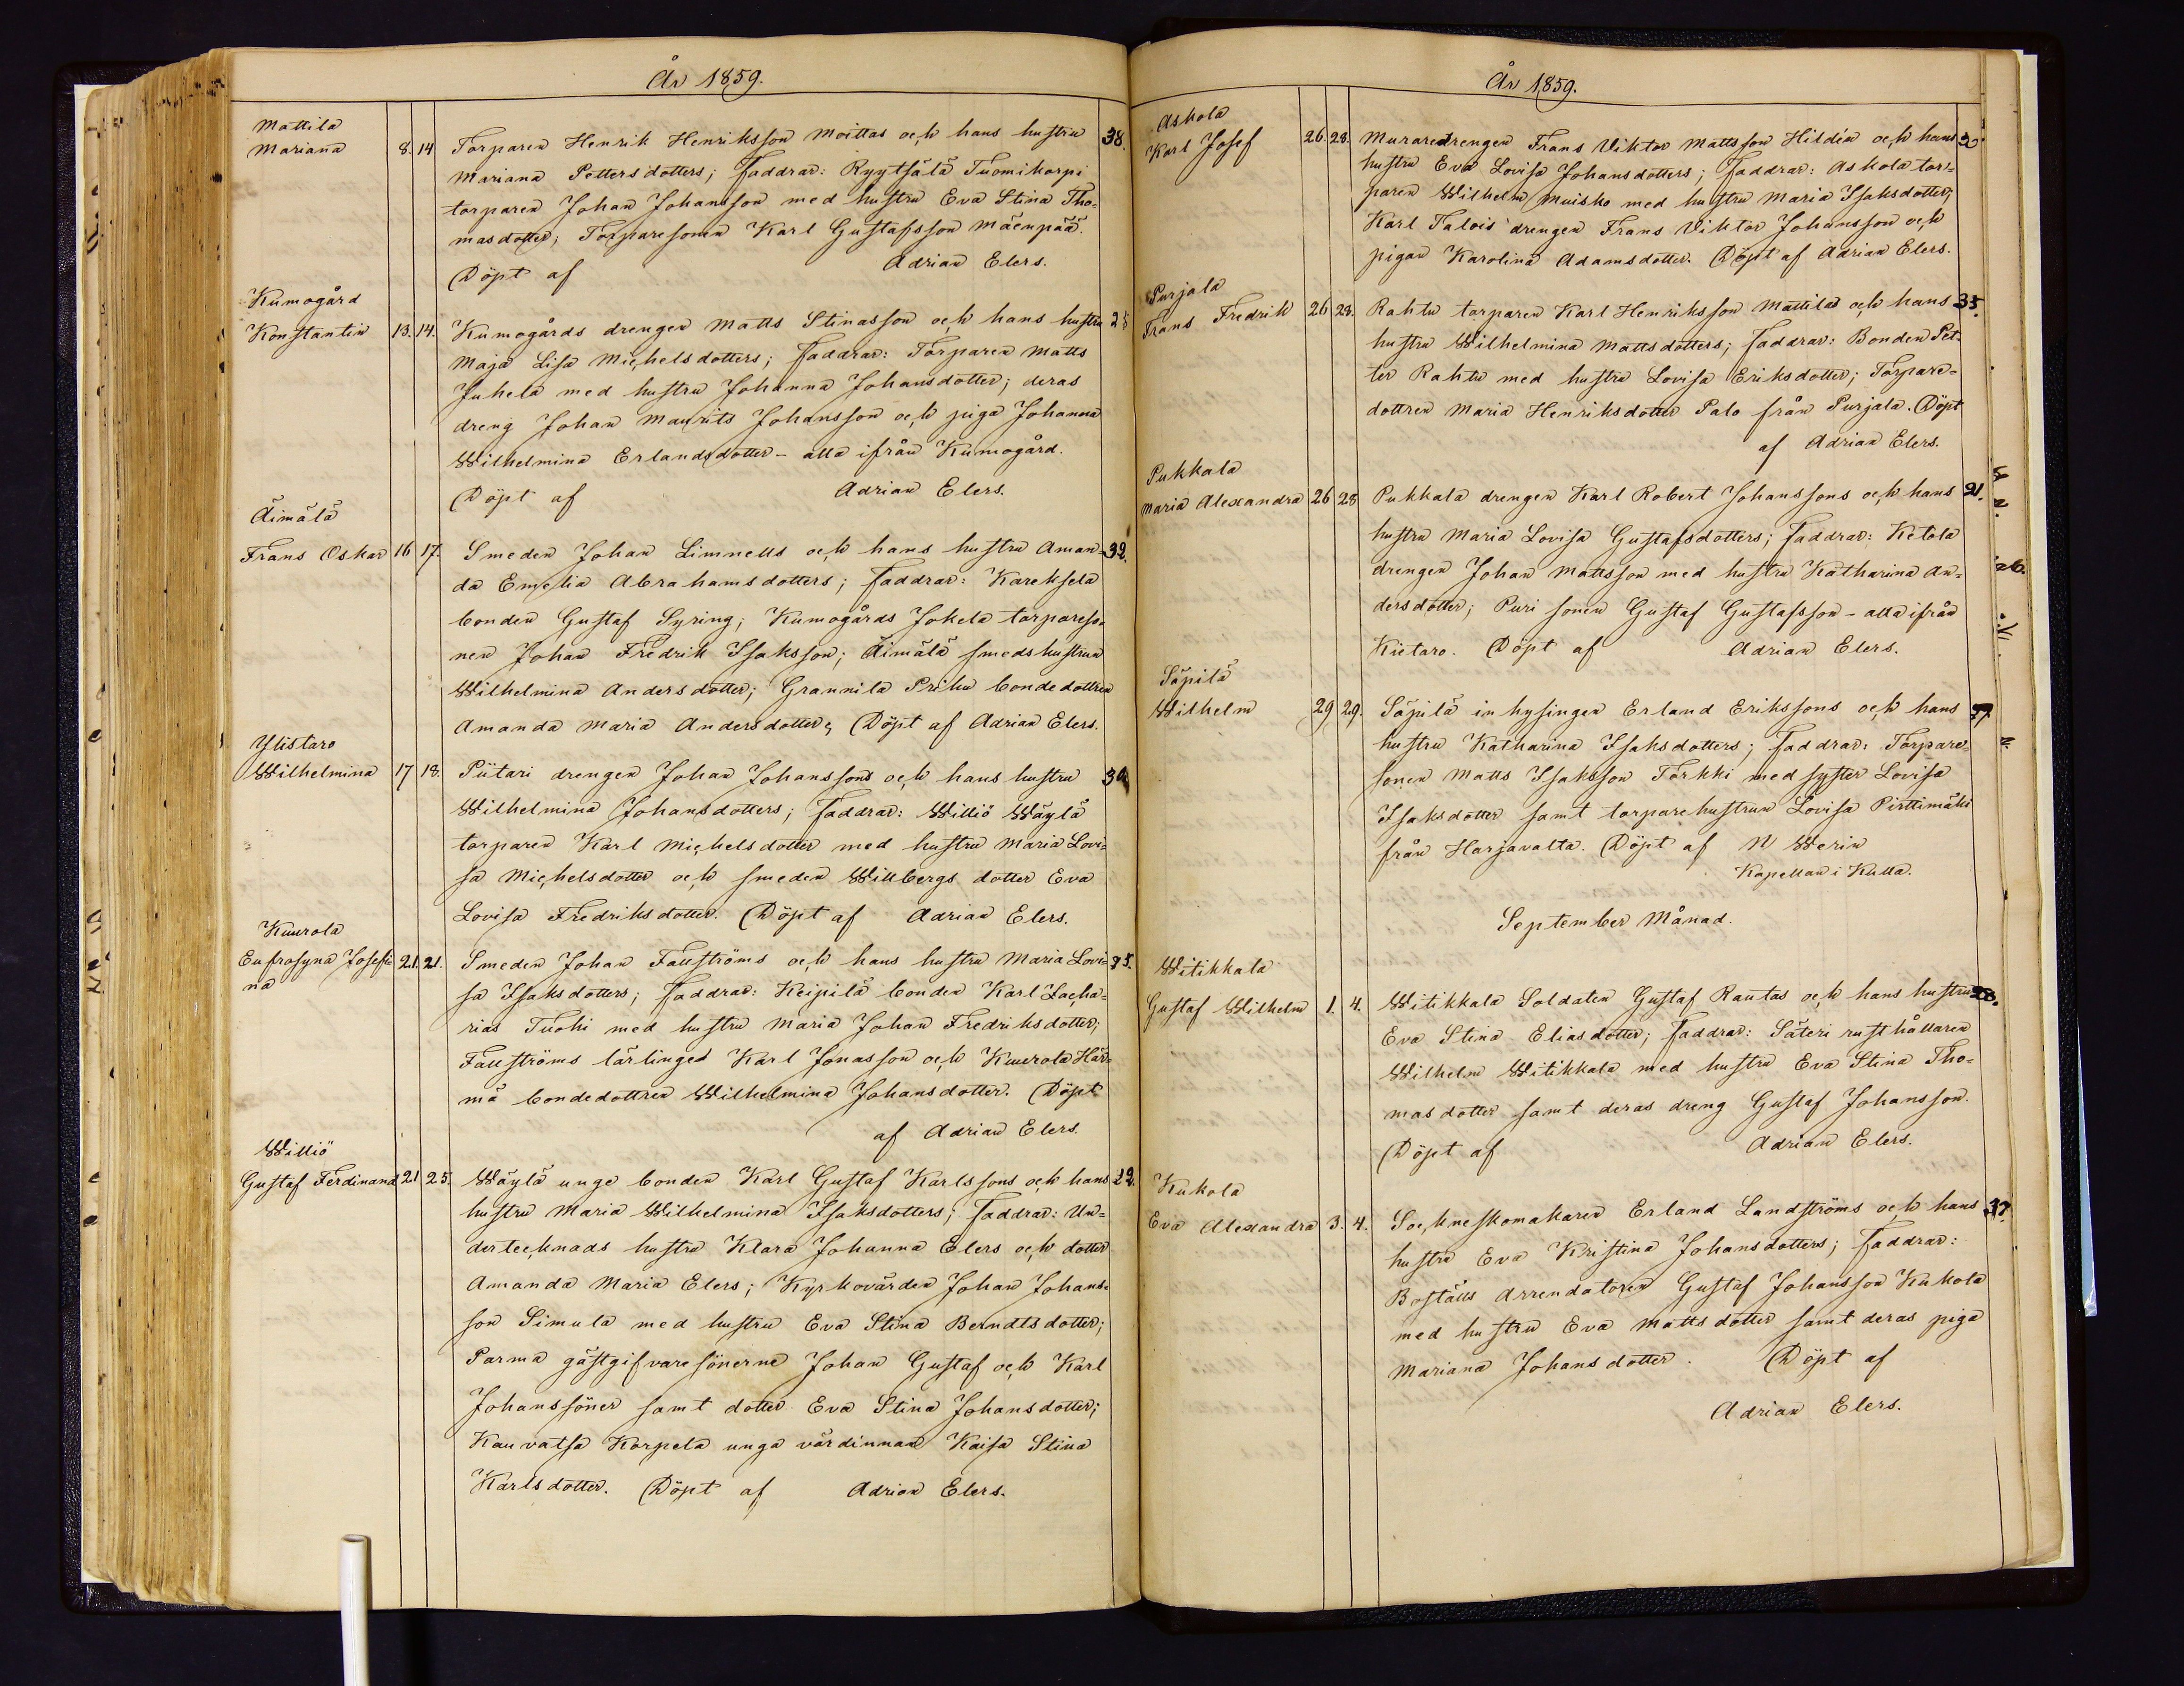 År 1859.
Mattila
Mariana 8. 14 Torparen Henrik Henriksson Moittas och hans hustru 38.
Mariana Pettersdotters; Faddrar: Ryytsälä Tuomikorpi
torparen Johan Johansson med hustru Eva Stina Tho-
masdotter; Torparesonen Karl Gustafsson Mäenpää.
Döpt af Adrian Elers.
Kumogård
Konstantin 13. 14. Kumogårds drengen Matts Stinasson och hans hustru 25
Maja Lisa Michelsdotters; Faddrar: Torparen Matts
Juhela med hustru Johanna Johansdotter; deras
dreng Johan Maurits Johansson och piga Johanna
Wilhelmina Erlandsdotter - alla ifrån Kumogård.
Döpt af Adrian Elers.
Äimälä
Frans Oskar 16 17. Smeden Johan Limnells och hans hustru Aman- 32.
da Emelia Abrahamsdotters; Faddrar: Kareksela
bonden Gustaf Syring; Kumogårds Jokela torpareso-
nen Johan Fredrik Isaksson; Äimälä smedshustrun
Wilhelmina Andersdotter; Grannila Priku bondedottren
Amanda Maria Andersdotter; Döpt af Adrian Elers.
Ylistaro
Wilhelmina 17 18. Piitari drengen Johan Johanssons och hans hustru
Wilhelmina Johansdotters; Faddrar: Williö Wäylä
torparen Karl Michelsdotter med hustru Maria Lovi-
sa Michelsdotter och smeden Willbergs dotter Eva
Lovisa Fredriksdotter. Döpt af Adrian Elers.
Kuurola
Eufrosyna Josefi- 21. 21. Smeden Johan Fallströms och hans hustru Maria Lovi- 35.
na sa Isaksdotters; Faddrar: Keipilä bonden Karl Zacha-
rias Tuohi med hustru Maria Johan Fredriksdotter;
Fallströms lärlingen Karl Jonasson och Kuurola Här-
mä bondedottren Wilhelmina Johansdotter. Döpt
af Adrian Elers.
Williö
Gustaf Ferdinand 21 25. Wäylä unge bonden Karl Gustaf Karlssons och hans 22.
hustru Maria Wilhelmina Isaksdotters; Faddrar: Un-
dertecknads hustru Klara Johanna Elers och dotter
Amanda Maria Elers; Kyrkovärden Johan Johans-
son Simula med hustru Eva Stina Berndtsdotter;
Parma gästgifvaresönerne Johan Gustaf och Karl
Johanssöner samt dotter Eva Stina Johansdotter;
Kauvatsa Korpela unga värdinnan Kaisa Stina
Karlsdotter. Döpt af Adrian Elers.
År 1859.
Askola
Karl Josef 26 28. Muraredrengen Frans Viktor Mattsson Hildén och hans
hustru Eva Lovisa Johansdotters; Faddrar: Askola tor-
paren Wilhelm Muisko med hustru Maria Isaksdotter;
Karl Talois drengen Frans Viktor Johansson och
pigan Karolina Adamsdotter. Döpt af Adrian Elers.
Purjala
Frans Fredrik 26 28. Rahtu torparen Karl Henriksson Mattilas och hans 35.
hustru Wilhelmina Mattsdotters; Faddrar: Bonden Pet-
ter Rahtu med hustru Lovisa Eriksdotter; Torpare-
dottren Maria Henriksdotter Palo från Purjala. Döpt
af Adrian Elers.
Pukkala
Maria Alexandra 26 28 Pukkala drengen Karl Robert Johanssons och hans 21.
hustru Maria Lovisa Gustafsdotters; Faddrar: Ketola
drengen Johan Mattsson med hustru Katharina An-
dersdotter; Puri sonen Gustaf Gustafsson - alla ifrån
Kietaro. Döpt af Adrian Elers.
Säpilä
Wilhelm 29 29. Säpilä inhysingen Erland Erikssons och hans
hustru Katharina Isaksdotters; Faddrar: Torpare-
sonen Matts Isaksson Torkki med syster Lovisa
Isaksdotter samt torparehustrun Lovisa Pirttimäki
från Harjavalta. Döpt af N Werin
Kapellan i Kulla.
September Månad.
Witikkala
Gustaf Wilhelm 1. 4. Witikkala Soldaten Gustaf Rautas och hans hustru
Eva Stina Eliasdotter; Faddrar: Säteri rusthållaren
Wilhelm Witikkala med hustru Eva Stina Tho-
masdotter samt deras dreng Gustaf Johansson.
Döpt af Adrian Elers.
Kukola
Eva Alexandra 3. 4. Sockneskomakaren Erland Landströms och hans 37.
hustru Eva Kristina Johansdotters; Faddrar:
Boställs Arrendatoren Gustaf Johansson Kukola
med hustru Eva Mattsdotter samt deras piga
Mariana Johansdotter. Döpt af
Adrian Elers.